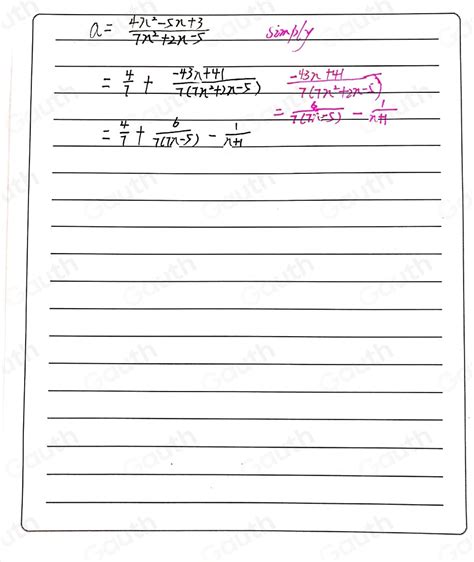 a = \frac{4x^2-5x+3}{7x^2+2x-5} simply
= \frac{4}{7} + \frac{-43x+41}{7(7x^2+2x-5)} \frac{-43x+41}{7(7x^2+2x-5)}
= \frac{6}{7(7x-5)} - \frac{1}{x+1}
= \frac{4}{7} + \frac{6}{7(7x-5)} - \frac{1}{x+1}
Gauth